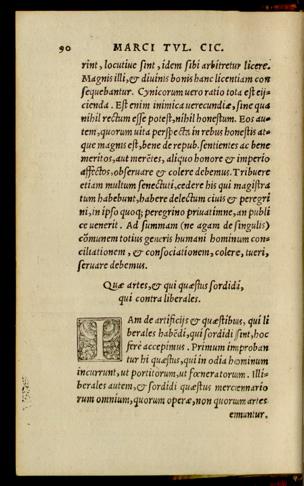 90 MARCI TVL. CIC.
rint, locutiue sint, idem sibi arbitretur licere.
Magnis illi, & diuinis bonis hanc licentiam con
sequebantur. Cynicorum uero ratio tota est eij-
cienda. Est enim inimica uerecundiæ, sine qua
nihil rectum esse potest, nihil honestum. Eos au-
tem, quorum uita perspecta in rebus honestis at-
que magnis est, bene de repub. sentientes ac bene
meritos, aut merētes, aliquo honore & imperio
affectos, obseruare & colere debemus. Tribuere
etiam multum senectuti, cedere his qui magistra
tum habebunt, habere delectum ciuis & peregri
ni, in ipso quoq; peregrino priuatimne, an publi
ce uenerit. Ad summam (ne agam de singulis)
cōmunem totius generis humani hominum con-
ciliationem, & consociationem, colere, tueri,
seruare debemus.
Quæ artes, & qui quæstus sordidi,
qui contra liberales.
IAm de artificijs & quæstibus, qui li
berales habēdi, qui sordidi sint, hoc
ferè accepimus. Primum improban
tur hi quæstus, qui in odia hominum
incurrunt, ut portitorum, ut fœneratorum. Illi-
berales autem, & sordidi quæstus mercennario
rum omnium, quorum operæ, non quorum artes
emantur.